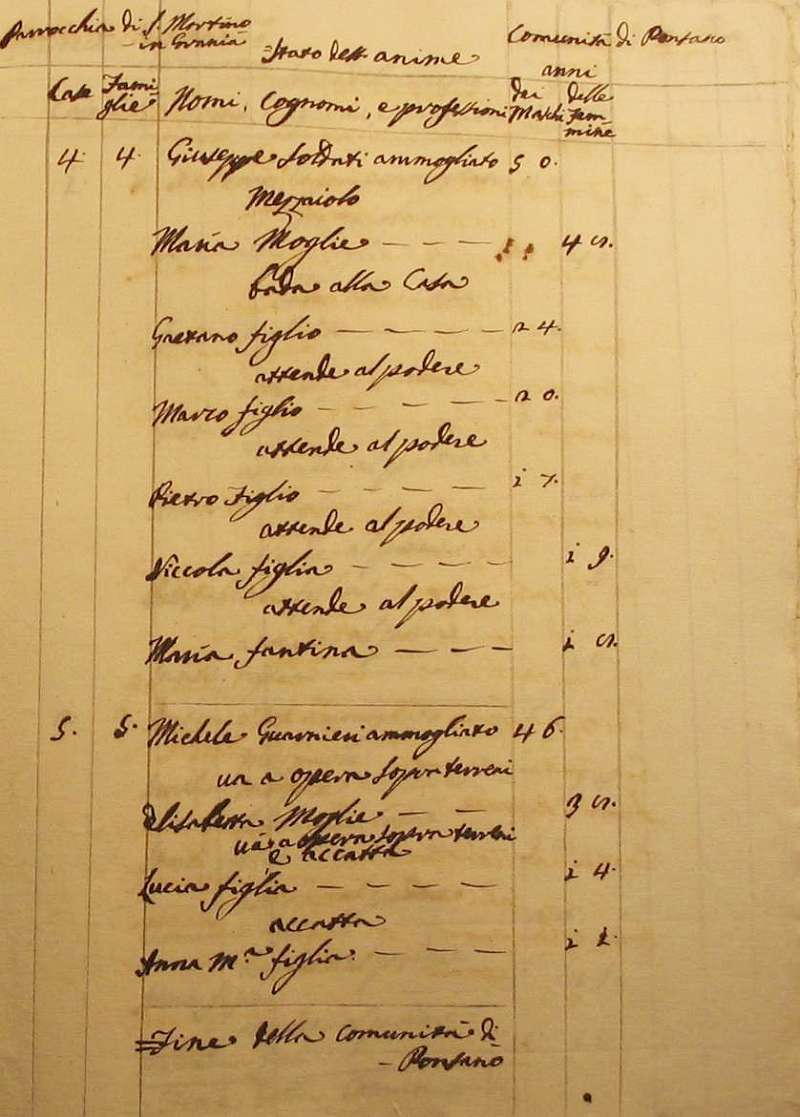 Parrocchia di S. Martino
in Gavania
=Stato dell anime
Comunità di Ponsano
anni
Case Fami-
glie
Nomi, Cognomi, e professioni
dei
Maschi
delle
Fem-
mine
4. 4. Giuseppe Soldati ammogliato 50.
Mezzaiolo
Maria Moglie 45.
bada alla Casa
Gaetano figlio 24.
attende al podere
Marco figlio 20.
attende al podere
Pietro Figlio i7.
attende al podere
Niccola figlia i9.
attende al podere
Maria fantina i5.
5. 5. Michele Guarnieri ammogliato 46.
va a opera sopra terreni
Elisabetta Moglie 35.
va a opera sopra terreni
e accatta
Lucia figlia i4.
accatta
Anna M.a figlia
=Fine della comunità di
Ponsano